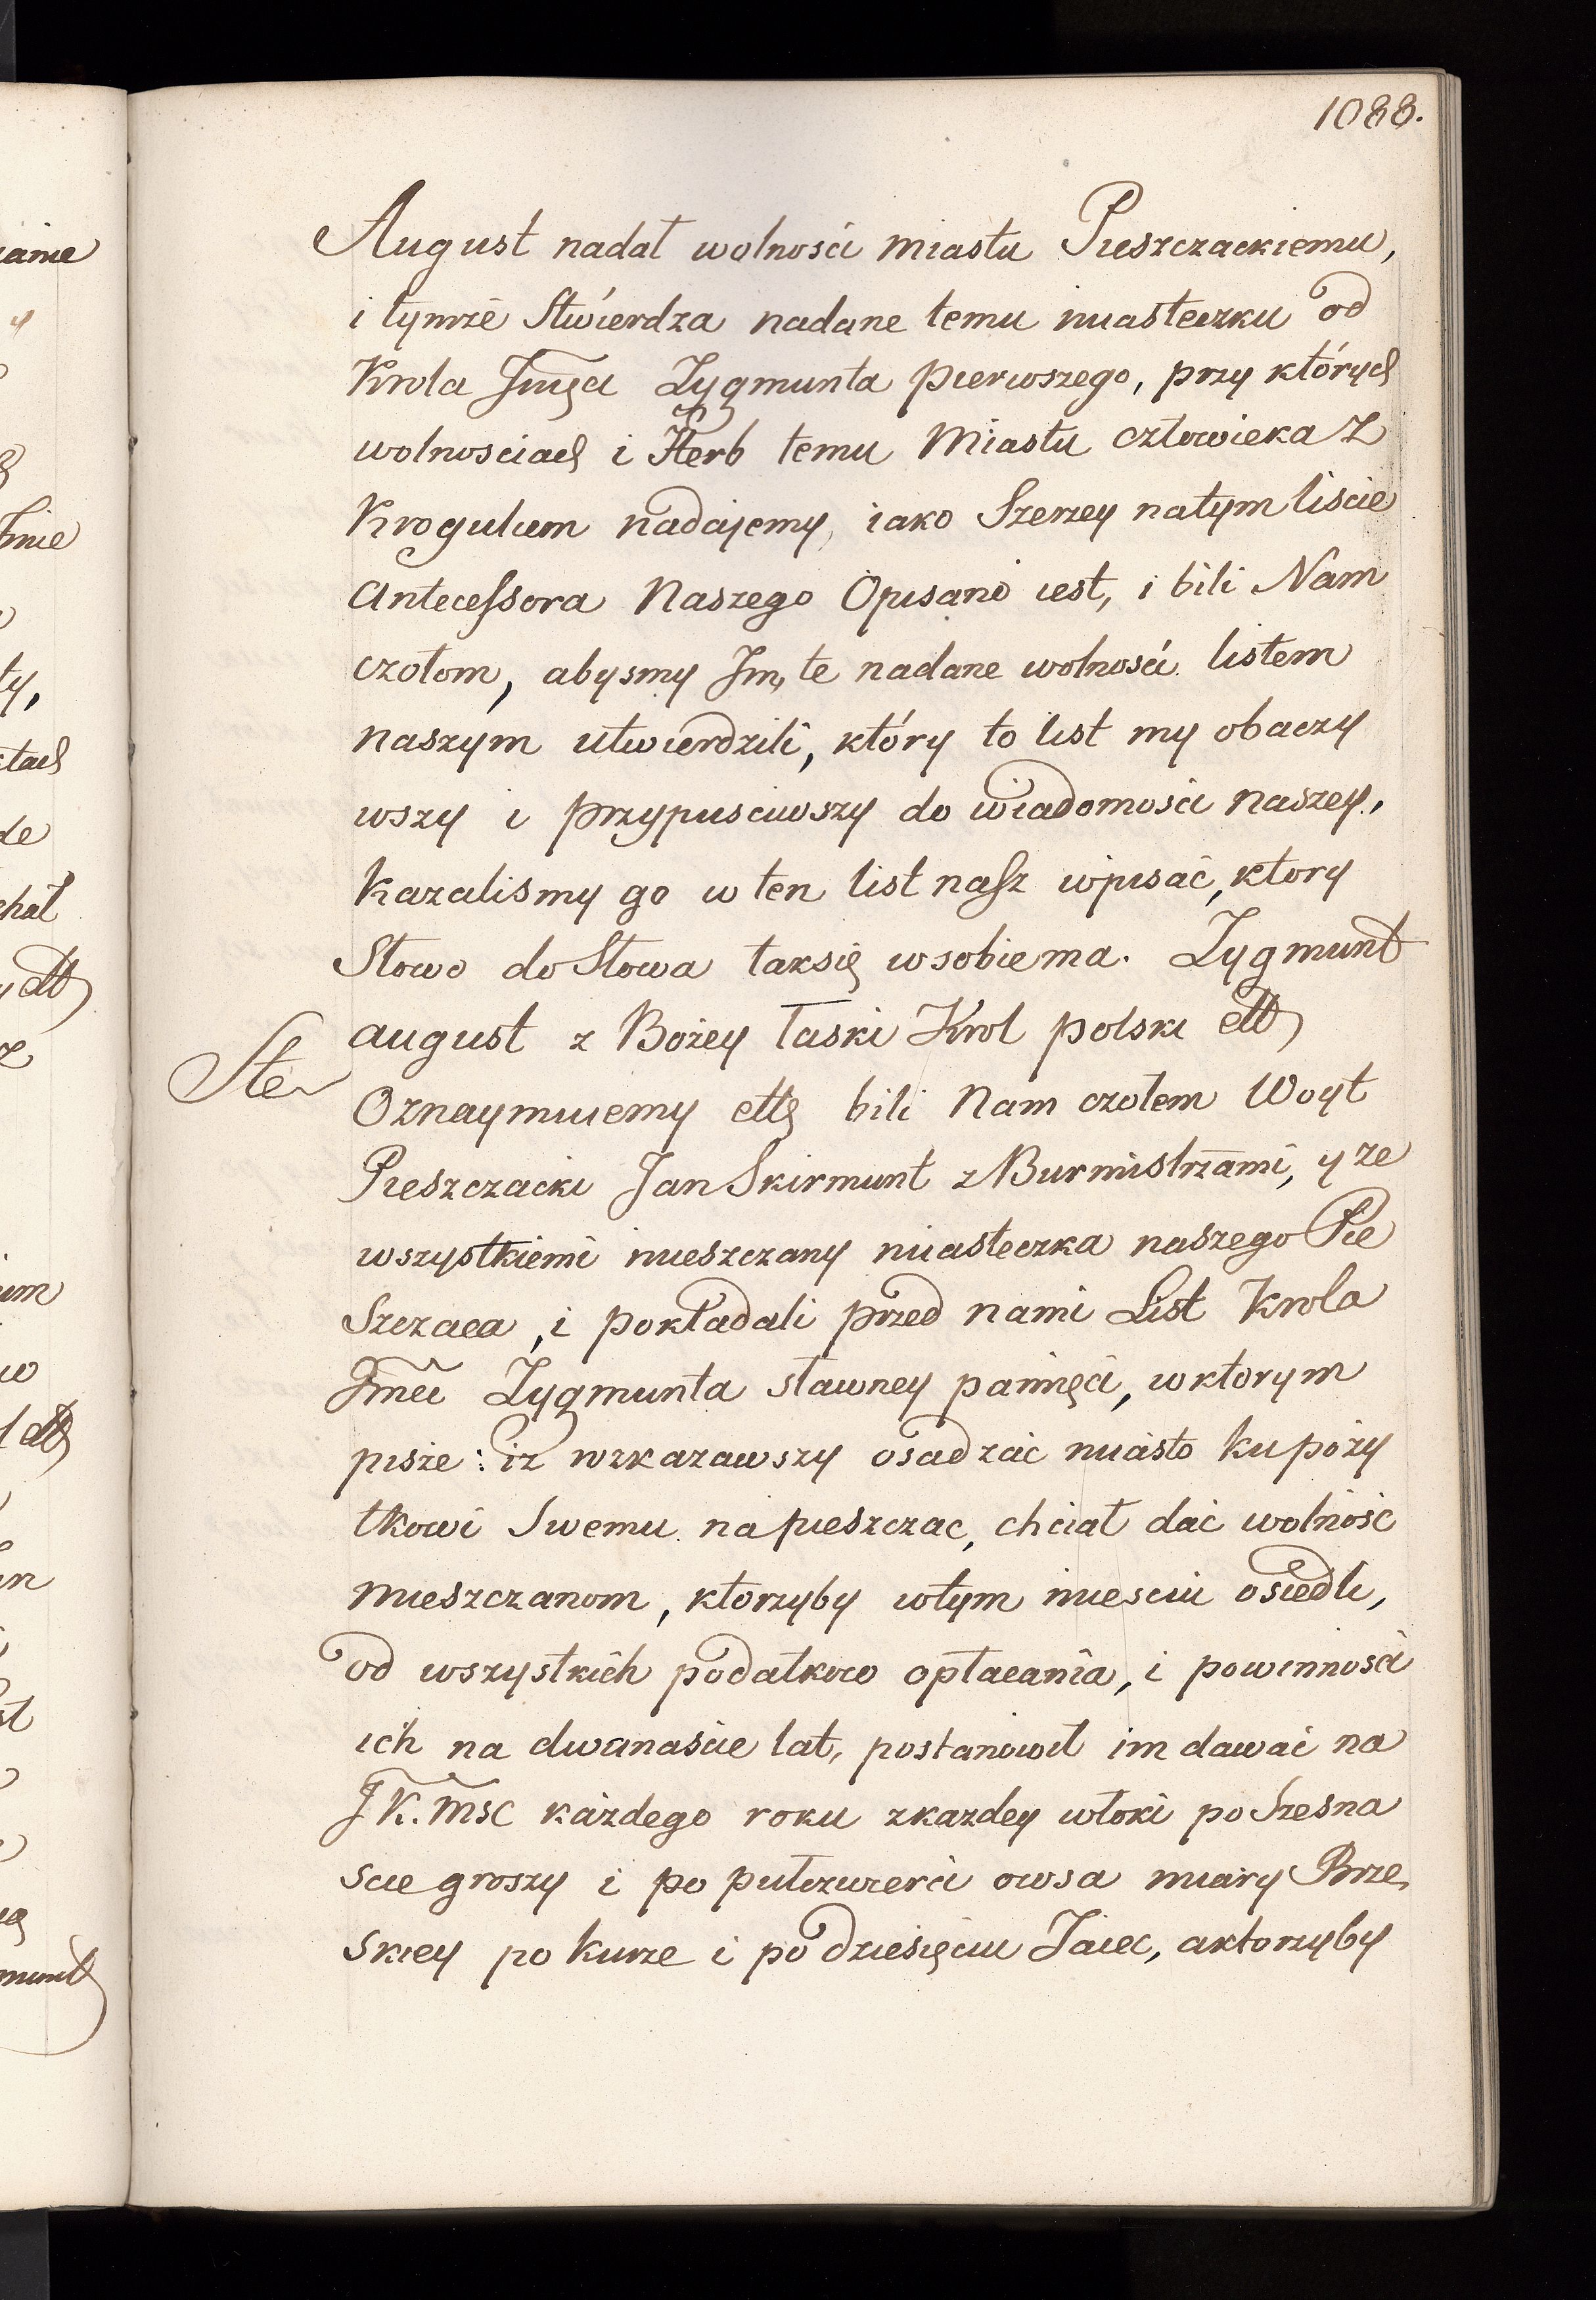 1088.
August nadał wolności miastu Pieszczackiemu,
i tymże Stwierdza nadane temu miasteczku od
Krola Jmści Zygmunta pierwszego, przy których
wolnosciach i Herb temu Miastu człowieka Z
Krogulcem nadajemy, iako Szerzey natym liscie
Antecessora Naszego Opisano iest, i bili Nam
czołom, abysmy Jm, te nadane wolności listem
naszym utwierdzili, który to list my obaczy
wszy i przypusciwszy do wiadomości naszey,
Kazalismy go w ten list nasz wpisać, ktory
Słowo do Słowa taksię wsobie ma. Zygmunt
august z Bożey Łaski Krol polski ett
Ste
Oznaymuiemy ettę bili Nam czołem Woyt
Pieszczacki Jan Skirmunt z Burmistrzami, y ze
wszystkiemi mieszczany miasteczka naszego Pie
Szczaca, i pokładali przed nami List Krola
Jmci Zygmunta sławney pamięci, wktorym
pisze: iz wzkazawszy osadzać miasto ku poży
tkowi Swemu na pieszczac, chciał dać wolność
mieszczanom, ktorzyby wtym miesciu osiedli,
od wszystkich podatkow opłacania, i powinności
ich na dwanaście lat, postanowił im dawać na
JK. Msc każdego roku zkazdey włoki po Szesna
scie groszy i po pułczwerci owsa miary Brze,
skiey po kurze i po dziesięciu Jaiec, aktorzyby